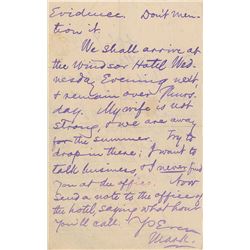 Evidence. Don't men-
tion it.
We shall arrive at
the Windsor Hotel Wed-
nesday Evening next,
& remain over Thurs-
day. My wife is not
strong, & we are away
for the summer. Try to
drop in there; I want to
talk business, & I never find
you at the office. Now
send a note to the office of
the hotel, saying what hour
you'll call. Ys Ever
Mark.